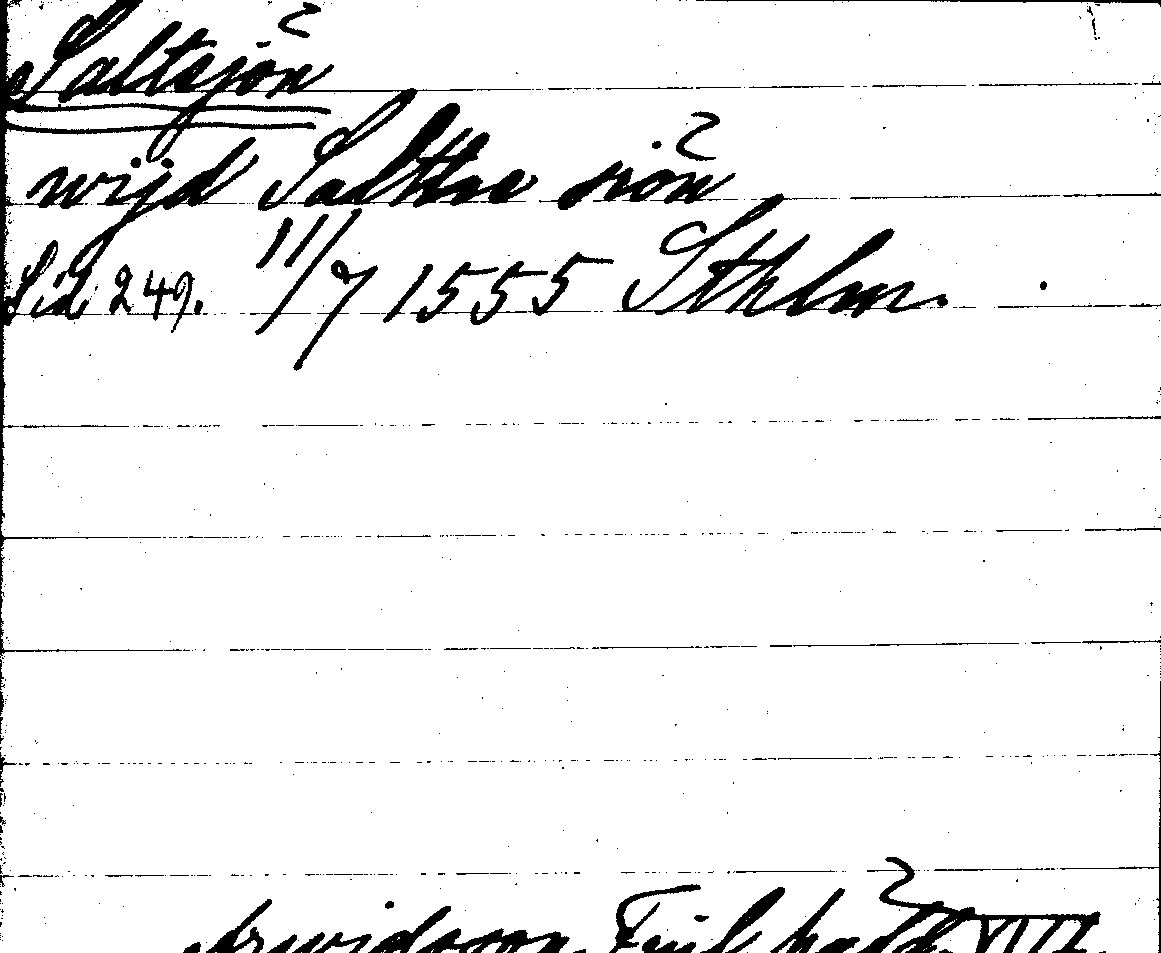 Saltsjön
wijd Salttne siön
Sid 249. 11/7 1555 Sthlm.
Arwidsson, Finl. hädd. VIII.